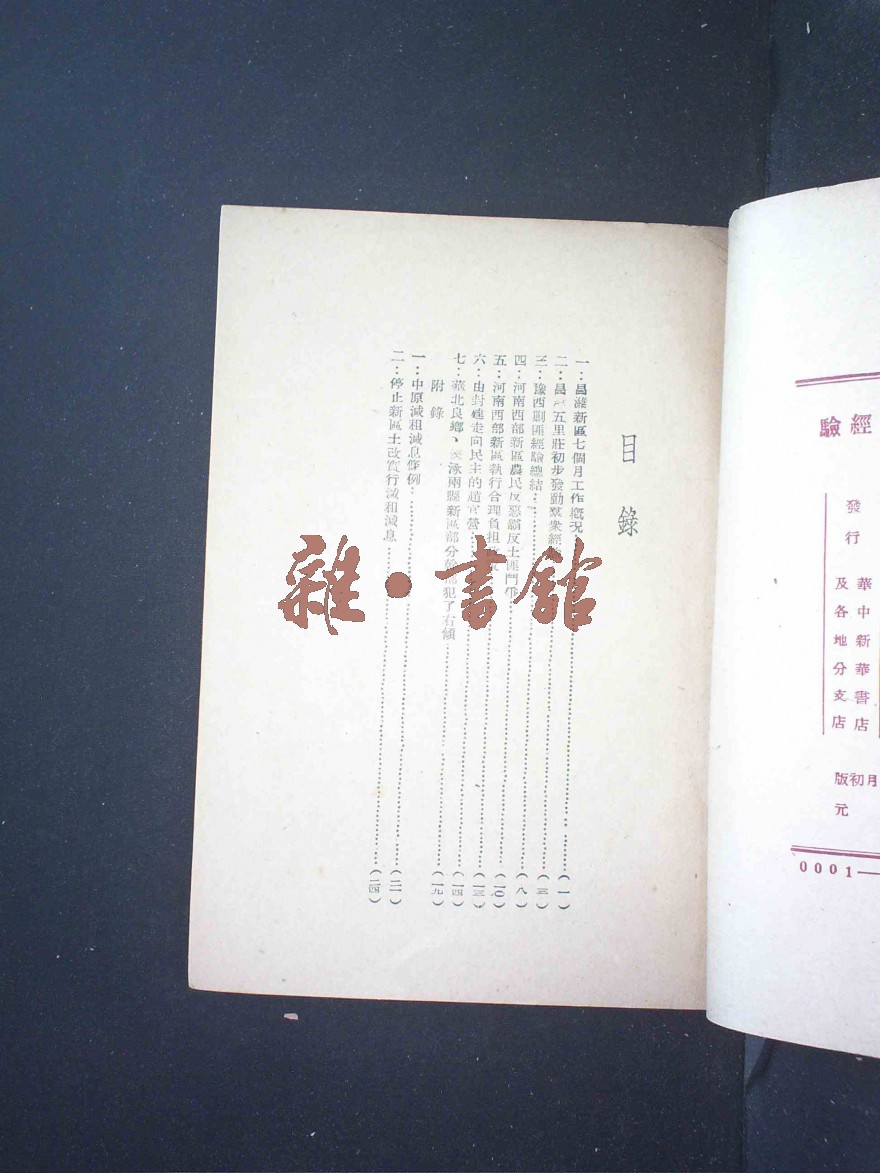 經驗
發行
華中新華書店
及各地分支店
月初版
元
0001—
目錄
一：昌濰新區七個月工作概況……(一)
二：昌 五里莊初步發動羣衆經……(三)
三：豫西剿匪經驗總結……(八)
四：河南西部新區農民反惡霸反土匪鬥……(一〇)
五：河南西部新區執行合理負担……(一三)
六：由封建走向民主的趙官營……(一四)
七：華北良鄉、 涿兩縣新區部分幹部犯了右傾……(一九)
附錄
一：中原減租減息條例……(二一)
二：停止新區土改實行減租減息……(二四)
雜·書館